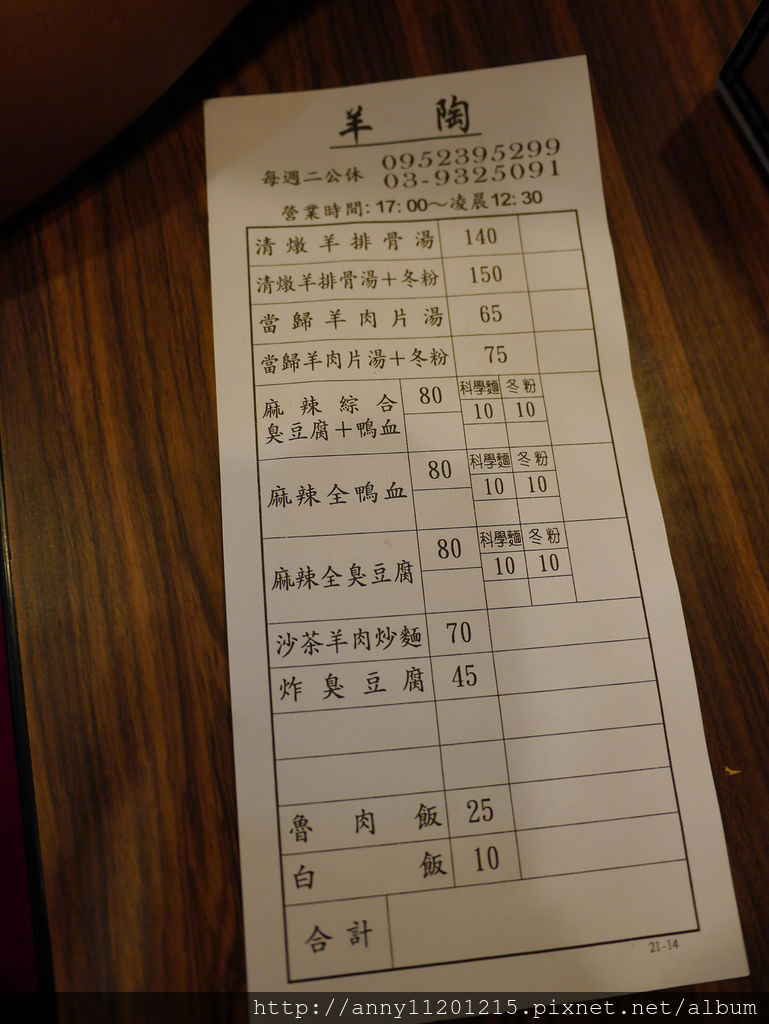 羊 陶
每週二公休 0952395299
03-9325091
營業時間:17:00~凌晨12:30
清燉羊排骨湯 140
清燉羊排骨湯+冬粉 150
當歸羊肉片湯 65
當歸羊肉片湯+冬粉 75
麻辣綜合 80 科學麵 冬粉
臭豆腐+鴨血 10 10
麻辣全鴨血 80 科學麵 冬粉
10 10
麻辣全臭豆腐 80 科學麵 冬粉
10 10
沙茶羊肉炒麵 70
炸臭豆腐 45
魯肉飯 25
白飯 10
合計
21-14
http://anny11201215.pixnet.net/album